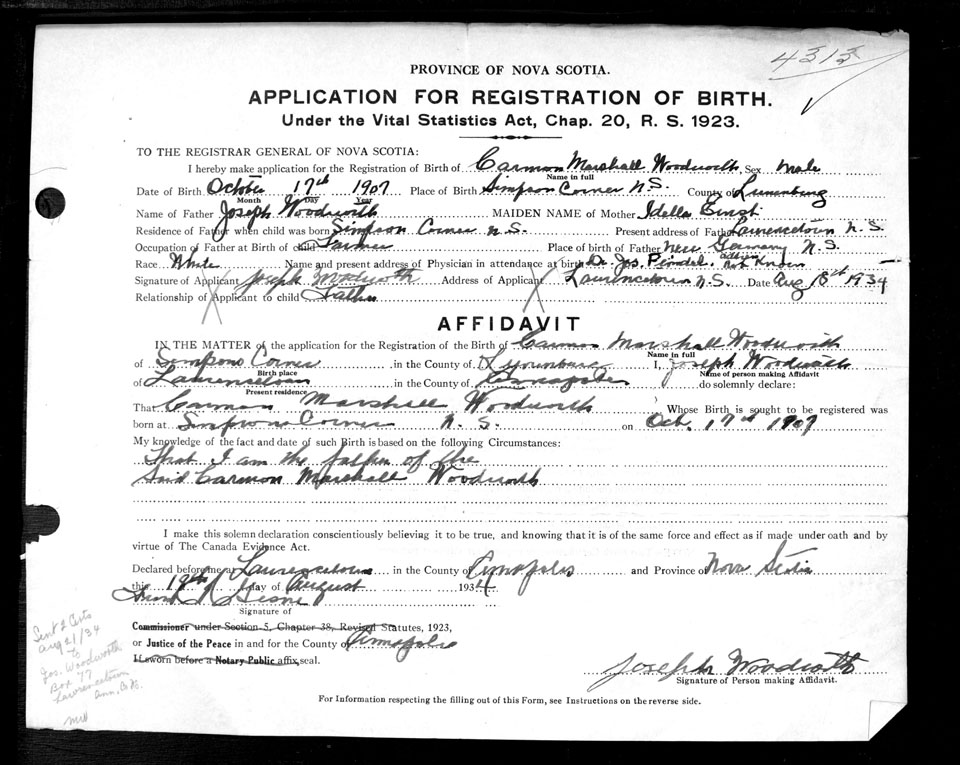 4313
PROVINCE OF NOVA SCOTIA.
APPLICATION FOR REGISTRATION OF BIRTH.
Under the Vital Statistics Act, Chap. 20, R. S. 1923.
TO THE REGISTRAR GENERAL OF NOVA SCOTIA:
I hereby make application for the Registration of Birth of Carmon Marshall Woodworth Sex male
Name in full
Date of Birth October 17th 1907 Place of Birth Simpson Corner N.S. County of Lunenburg
Month Day Year
Name of Father Joseph Woodworth MAIDEN NAME of Mother Idella
Residence of Father when child was born Simpson Corner N.S. Present address of Father Laurencetown N.S.
Occupation of Father at Birth of child Farmer Place of birth of Father New Germany N.S.
Race White Name and present address of Physician in attendance at birth Dr. Jos. address not known
Signature of Applicant Joseph Woodworth Address of Applicant Laurencetown N.S. Date Aug 18th 1934
Relationship of Applicant to child Father
AFFIDAVIT
IN THE MATTER of the application for the Registration of the Birth of Carmon Marshall Woodworth
Name in full
of Simpsons Corner in the County of I, Joseph Woodworth
Birth place Name of person making Affidavit
of in the County of Annapolis do solemnly declare:
Present residence
That Carmon Marshall Woodworth Whose Birth is sought to be registered was
born at Simpsons Corner N.S. on Oct. 17th 1907
My knowledge of the fact and date of such Birth is based on the following Circumstances:
That I am the father of the
said Carmon Marshall Woodworth
I make this solemn declaration conscientiously believing it to be true, and knowing that it is of the same force and effect as if made under oath and by
virtue of The Canada Evidence Act.
Declared before me at Lawrencetown in the County of Annapolis and Province of Nova Scotia
this 19th day of August 1934
Signature of
Commissioner under Section 5, Chapter 38, Revised Statutes, 1923,
or Justice of the Peace in and for the County of Annapolis
If sworn before a Notary Public affix seal.
Joseph Woodworth
Signature of Person making Affidavit.
For Information respecting the filling out of this Form, see Instructions on the reverse side.
Sent 2 Certs
Aug 21/34
to
Jos. Woodworth
Box 77
Lawrencetown
Ann. Co.